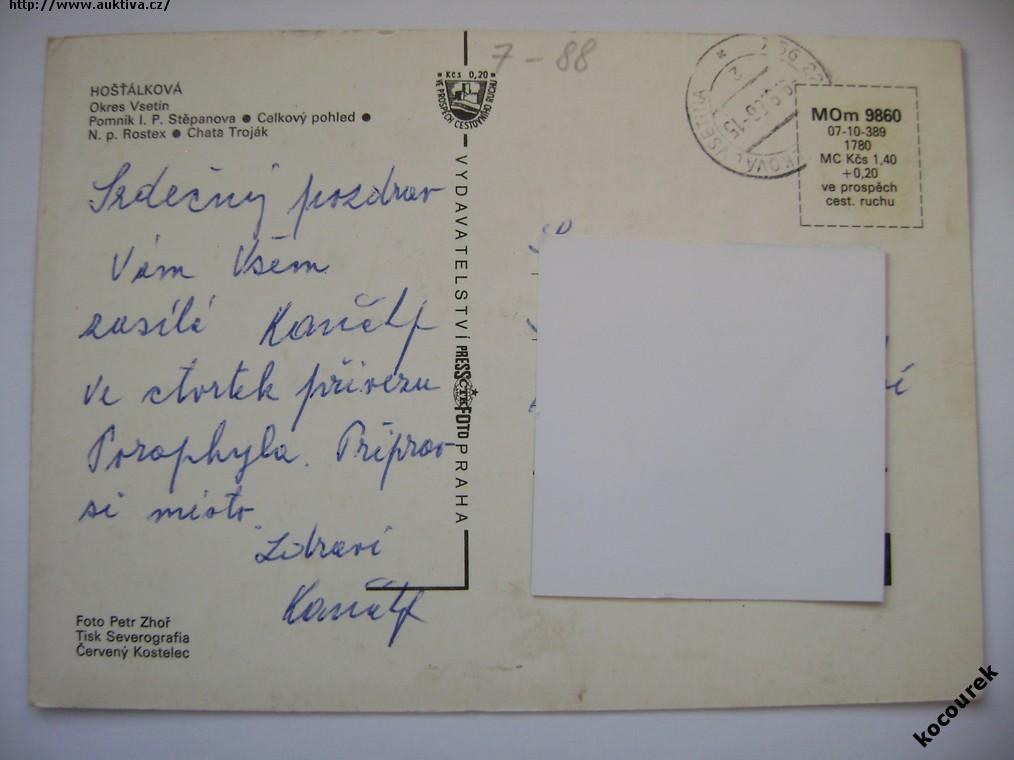 http://www.auktiva.cz/
7-88
HOŠŤÁLKOVÁ
Okres Vsetín
Pomník I. P. Stěpanova ● Celkový pohled ●
N. p. Rostex ● Chata Troják
Kčs 0,20
VE PROSPĚCH CESTOVNÍHO RUCHU
VYDAVATELSTVÍ PRESSFOTO PRAHA
ČTK
MOm 9860
07-10-389
1780
MC Kčs 1,40
+0,20
ve prospěch
cest. ruchu
Srdečný pozdrav
Vám Všem
zasílá
ve čtvrtek přivezu
Připrav
si místo
Zdraví
Foto Petr Zhoř
Tisk Severografia
Červený Kostelec
kocourek